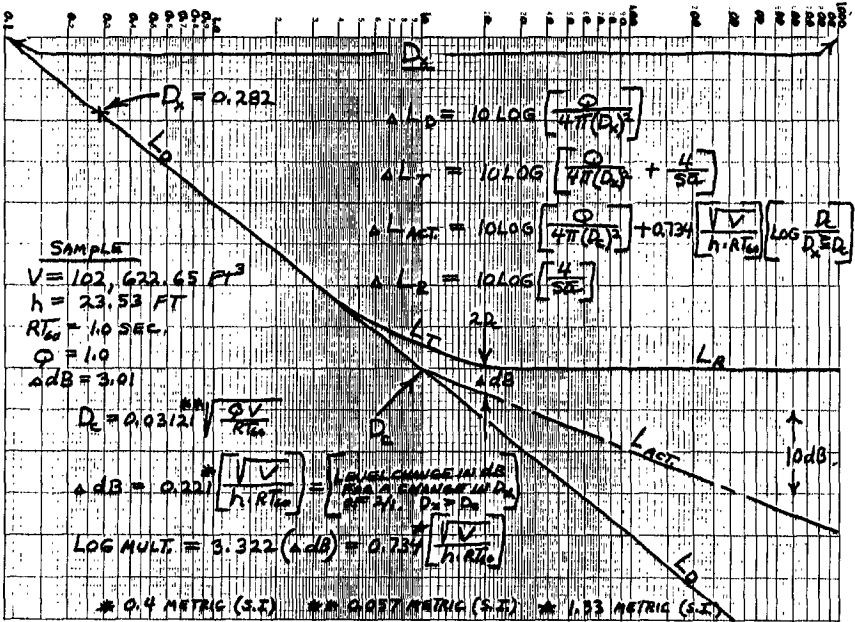 D_x
D_x = 0.282
Δ L_D = 10 LOG [Q / 4π(D_x)²]
L_D
Δ L_T = 10 LOG [Q / 4π(D_x)² + 4 / Sā]
Δ L_ACT. = 10 LOG [Q / 4π(D_c)²] + 0.734 [√V / h·RT₆₀] [LOG D_c / D_x ≥ D_c]
Δ L_R = 10 LOG [4 / Sā]
SAMPLE
V = 102,622.65 FT³
h = 23.53 FT
RT₆₀ = 1.0 SEC.
Q = 1.0
ΔdB = 3.01
L_T
L_R
ΔdB
D_c = 0.03121** √(QV / RT₆₀)
D_c
L_ACT.
10dB
Δ dB = 0.221* [√V / h·RT₆₀] = [LEVEL CHANGE IN dB FOR A CHANGE IN D_x OF 2/1. D_x > D_c]
LOG MULT. = 3.322 (ΔdB) = 0.734* [√V / h·RT₆₀]
L_D
* 0.4 METRIC (S.I.) ** 0.057 METRIC (S.I.) * 1.33 METRIC (S.I.)